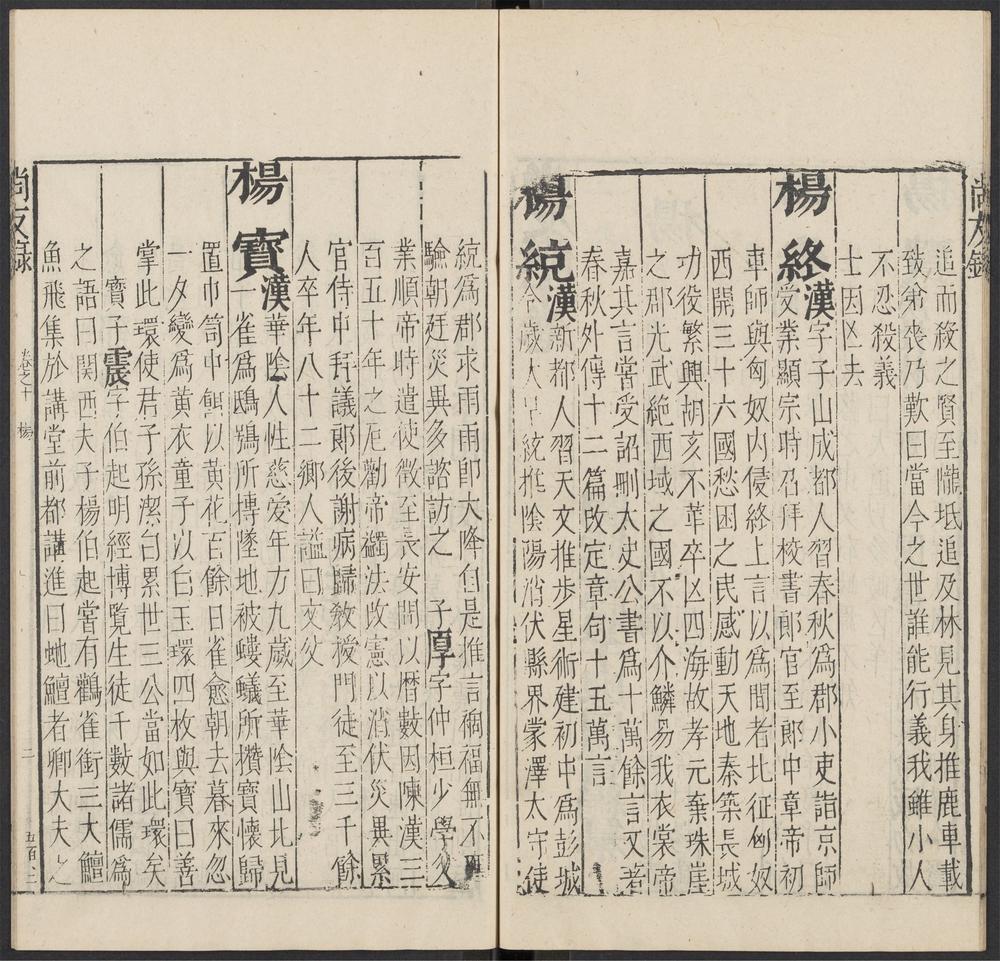 追而殺之賢至隴坻追及林見其身推鹿車載
致弟喪乃歎曰當今之世誰能行義我雖小人
不忍殺義
士因亡去
楊終漢字子山成都人習春秋為郡小吏詣京師
受業顯宗時召拜校書郎官至郎中章帝初
車師與匈奴内侵終上言以為間者北征匈奴
西開三十六國愁困之民感動天地秦築長城
功役繁興胡亥不革卒亡四海故孝元棄珠崖
之郡光武絶西域之國不以介鱗易我衣裳帝
嘉其言嘗受詔刪太史公書為十萬餘言又著
春秋外傳十二篇改定章句十五萬言
楊統漢新都人習天文推步星術建初中為彭城
令歲大旱統推陰陽消伏縣界蒙澤太守使
統為郡求雨雨卽大降自是推言禍福無不
驗朝廷災異多諮訪之 子厚字仲桓少學父
業順帝時遣使徵至長安問以曆數因陳漢三
百五十年之厄勸帝蠲法改憲以消伏災異累
官侍中拜議郎後謝病歸敎授門徒至三千餘
人卒年八十二鄉人諡曰文父
楊寶漢華陰人性慈爱年方九歲至華陰山北見
一雀為鴟鴞所搏墜地被螻蟻所攢寶懷歸
置巾笥中餌以黃花百餘日雀愈朝去暮來忽
一夕變為黄衣童子以白玉環四枚與寶曰善
掌此環使君子孫潔白累世三公當如此環矣
寶子震字伯起明經博覽生徒千數諸儒為
之語曰関西夫子楊伯起嘗有鸛雀銜三大鱣
魚飛集於講堂前都講進曰虵鱣者卿大夫之
尚友録 卷之十 楊 二 五百